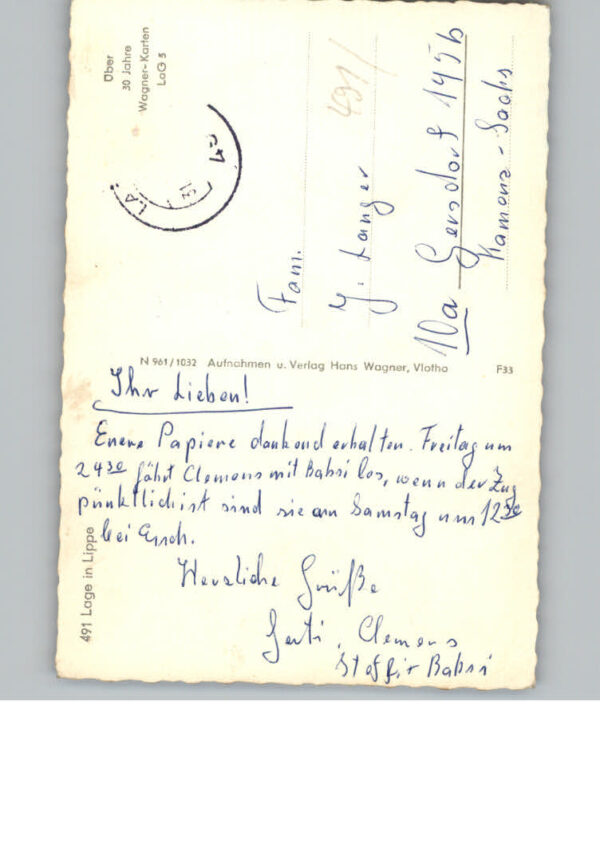 Über
30 Jahre
Wagner-Karten
LaG 5
491/
Fam.
J. Langer
10a Gersdorf 145b
Kamenz-Sachs
N 961/1032 Aufnahmen u. Verlag Hans Wagner, Vlotho F33
Ihr Lieben!
Euere Papiere dankend erhalten. Freitag um
24³⁰ fährt Clemens mit Babsi los, wenn der Zug
pünktlich ist sind sie am Samstag um 12³⁰
bei Euch.
Herzliche Grüße
Gerti, Clemens
Steffi + Babsi
491 Lage in Lippe